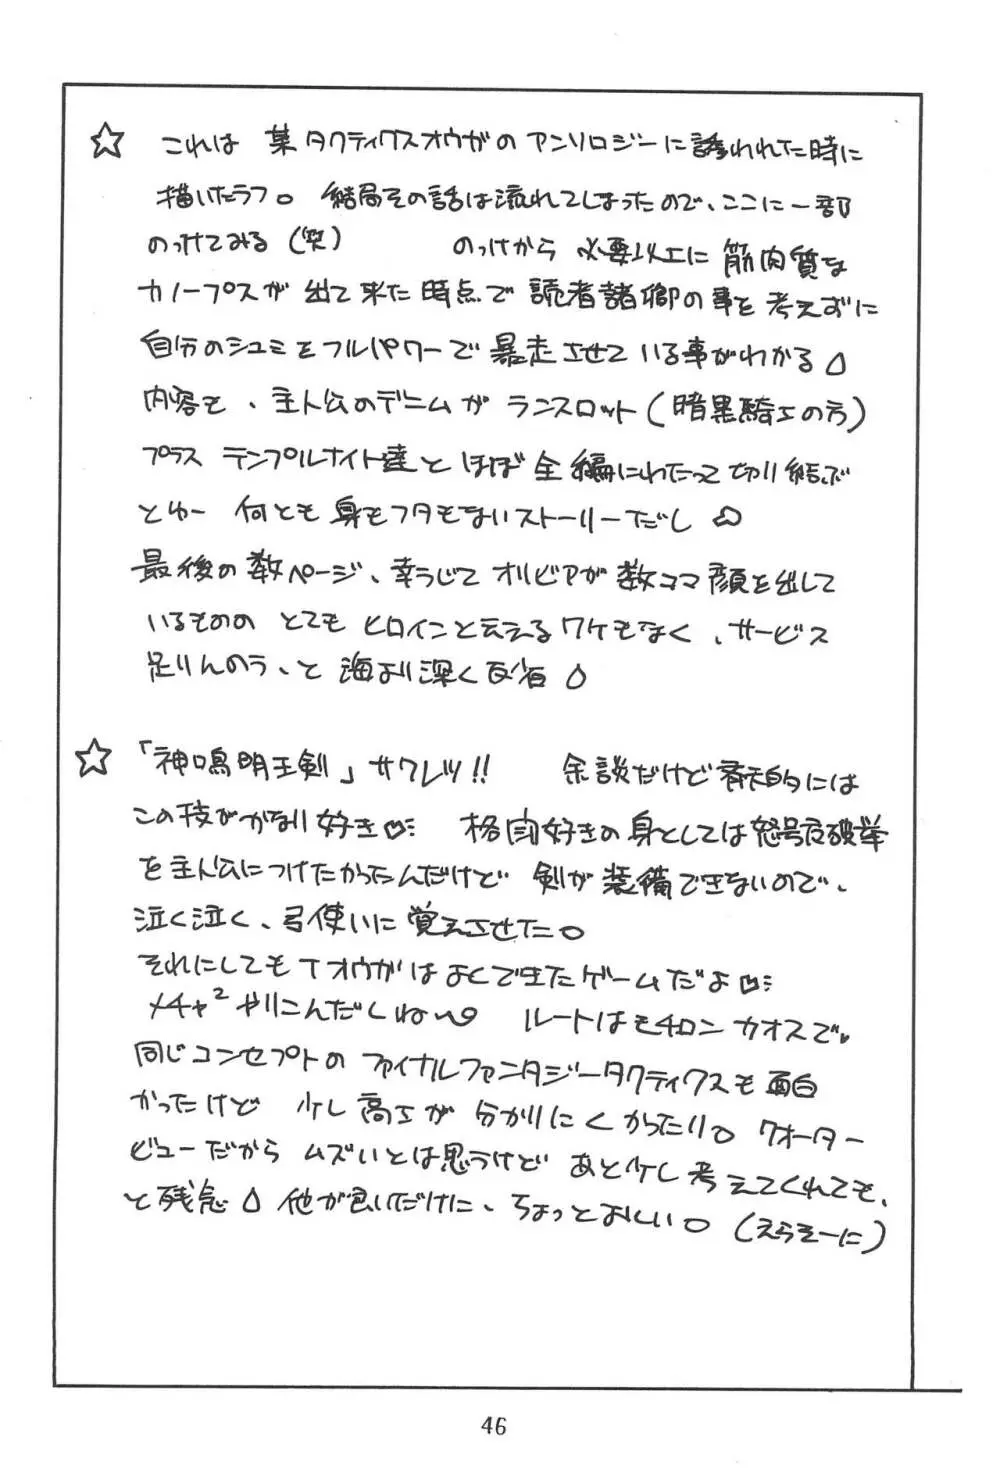 ☆ これは 某タクティクスオウガの アンソロジーに誘われた時に
描いたラフ。 結局その話は流れてしまったので、ここに一部
のっけてみる(笑) のっけから 必要以上に 筋肉質な
カノープスが 出て来た時点で 読者諸卿の事を 考えずに
自分のシュミを フルパワーで 暴走させて いる事がわかる
内容も、主人公のデニムが ランスロット(暗黒騎士の方)
プラス テンプルナイト達と ほぼ全編にわたって切り結ぶ
とゆー 何とも 身もフタもないストーリーだし
最後の数ページ、辛うじて オリビアが 数コマ顔を出して
いるものの とても ヒロインと云えるワケもなく、サービス
足りんのう、と 海より深く反省
☆ 「神鳴明王剣」サクレツ!! 余談だけど 的には
この技が かなり好き 格闘好きの身としては 怒号危破拳
を主人公につけたかったんだけど 剣が装備できないので、
泣く泣く、弓使いに 覚えさせた。
それにしても Tオウガは よくできたゲームだよ
メチャ2 やりこんだしね〜 ルートはモチロン カオスで
同じコンセプトの ファイナルファンタジータクティクスも 面白
かったけど 少し高さが 分かりにくかったり。 クオーター
ビューだから ムズいとは思うけど あと少し 考えてくれても、
と残念 他が良いだけに、ちょっとおしい。 (えらそーに)
46